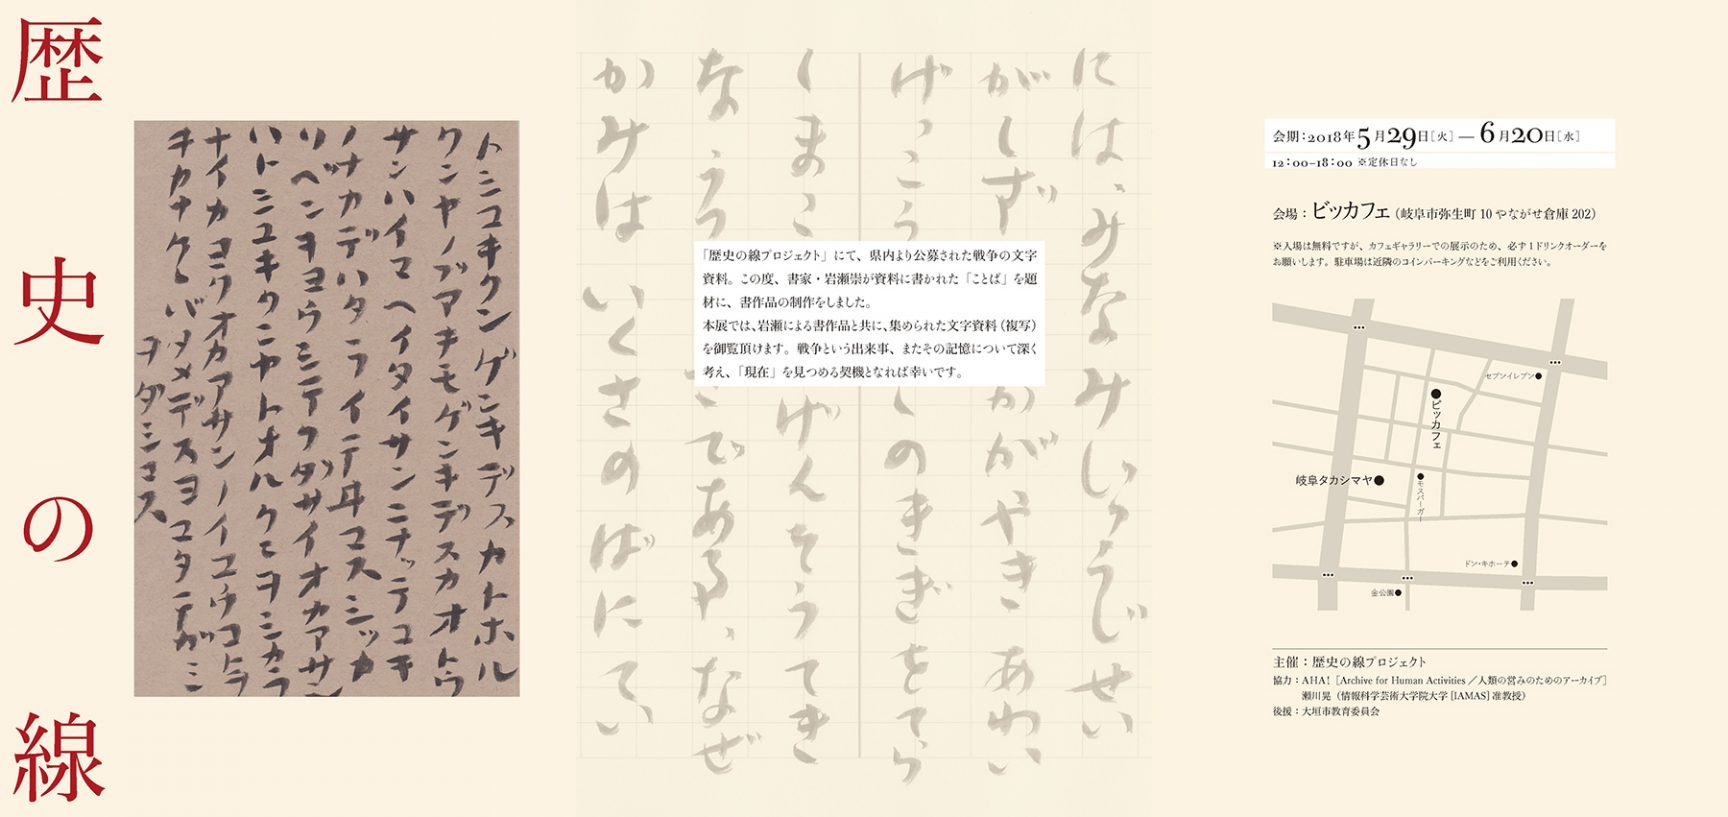 歴史の線
トシユキクンゲンキデスカトホル
クンヤノブアキモゲンキデスカオトウ
サンハイマヘイタイサンニナッテユキ
ノナカデハタライテヰマスシッカ
リベンキヨウシテクダサイオカアサン
ハトシユキクンヤトオルクンヲシカラ
ナイカヨクオカアサンノイユウコトヲ
キカナケレバダメデスヨマタテガミ
ヲダシマス
には、みなみじゅうじせい
がしず かがやき あわい
げっこう しのきぎをてら
しまこ げんそうてき
な、うつ である なぜ
かみは いくさのばにてい
「歴史の線プロジェクト」にて、県内より公募された戦争の文字
資料。この度、書家・岩瀬崇が資料に書かれた「ことば」を題
材に、書作品の制作をしました。
本展では、岩瀬による書作品と共に、集められた文字資料（複写）
を御覧頂けます。戦争という出来事、またその記憶について深く
考え、「現在」を見つめる契機となれば幸いです。
会期：2018年5月29日［火］—6月20日［水］
12：00–18：00 ※定休日なし
会場：ビッカフェ（岐阜市弥生町10 やながせ倉庫202）
※入場は無料ですが、カフェギャラリーでの展示のため、必ず1ドリンクオーダーを
お願いします。駐車場は近隣のコインパーキングなどをご利用ください。
セブンイレブン
ビッカフェ
岐阜タカシマヤ
モスバーガー
ドン・キホーテ
金公園
主催：歴史の線プロジェクト
協力：AHA!［Archive for Human Activities／人類の営みのためのアーカイブ］
瀬川晃（情報科学芸術大学院大学［IAMAS］准教授）
後援：大垣市教育委員会